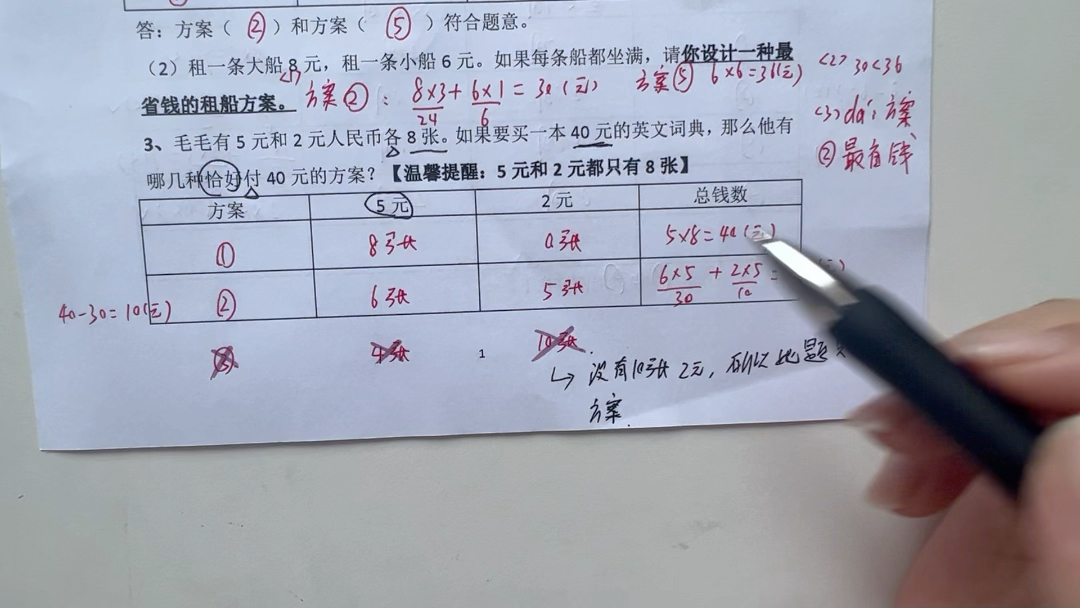 答：方案（ ② ）和方案（ ⑤ ）符合题意。
（2）租一条大船 8 元，租一条小船 6 元。如果每条船都坐满，请你设计一种最
省钱的租船方案。
<1>
方案②：8×3+6×1=30(元)
24 6
方案⑤ 6×6=36(元)
<2> 30<36
<3> da：方案
②最省钱
3、毛毛有 5 元和 2 元人民币各 8 张。如果要买一本 40 元的英文词典，那么他有
哪几种恰好付 40 元的方案？【温馨提醒：5 元和 2 元都只有 8 张】
方案 5 元 2 元 总钱数
① 8张 0张 5×8=40(元)
40-30=10(元) ② 6张 5张 6×5+2×5=
30 10
③ 4张 10张
1
↳ 没有10张2元，所以此题
方案.